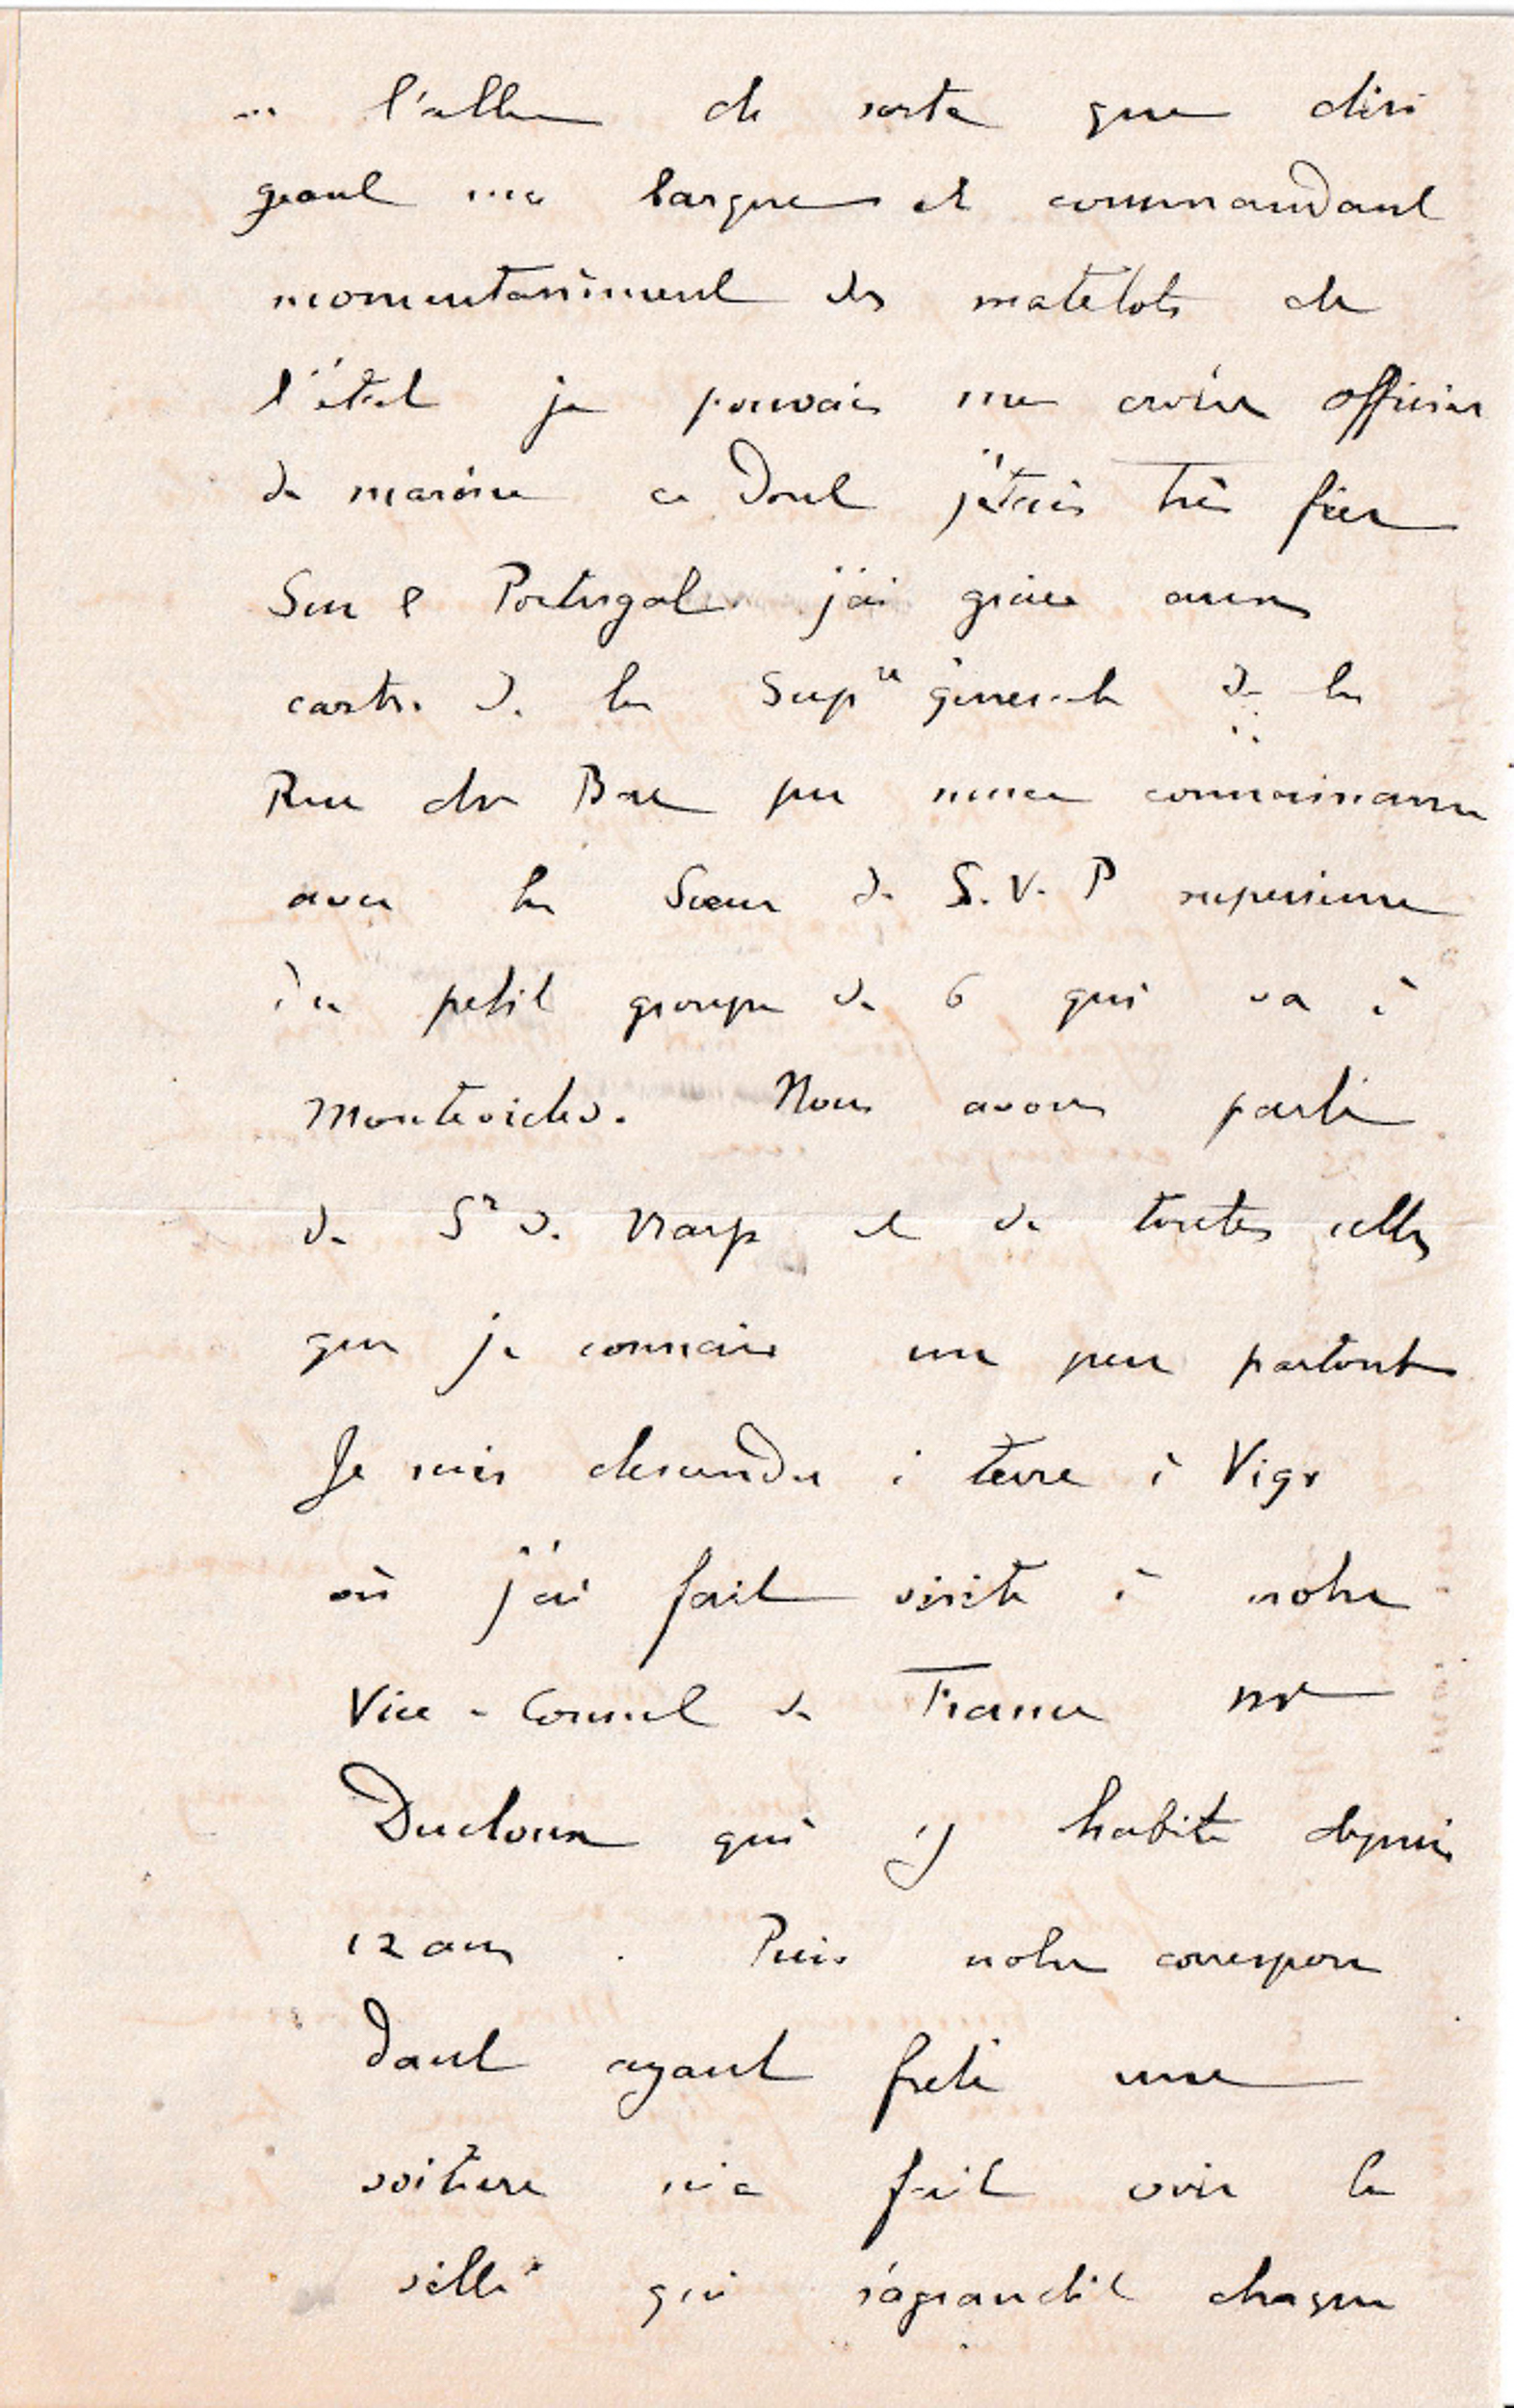 de sorte que diri
geant ma barque et commandant
momentanément des matelots de
l'état je pouvais me croire officier
de marine ce dont j'étais très fier
Sur le Portugal j'ai grâce aux
cartes de la Supre générale de la
Rue du Bac pu nouer connaissance
avec la Soeur de S. V. P supérieure
du petit groupe de 6 qui va à
Montevideo. Nous avons parlé
de Sr de et de toutes celles
que je connais un peu partout
Je suis descendu à terre à Vigo
où j'ai fait visite à notre
Vice-Consul de France Mr
Ducloux qui y habite depuis
12 ans. Puis notre correspon
dant ayant frété une
voiture m'a fait voir la
ville qui s'agrandit chaque